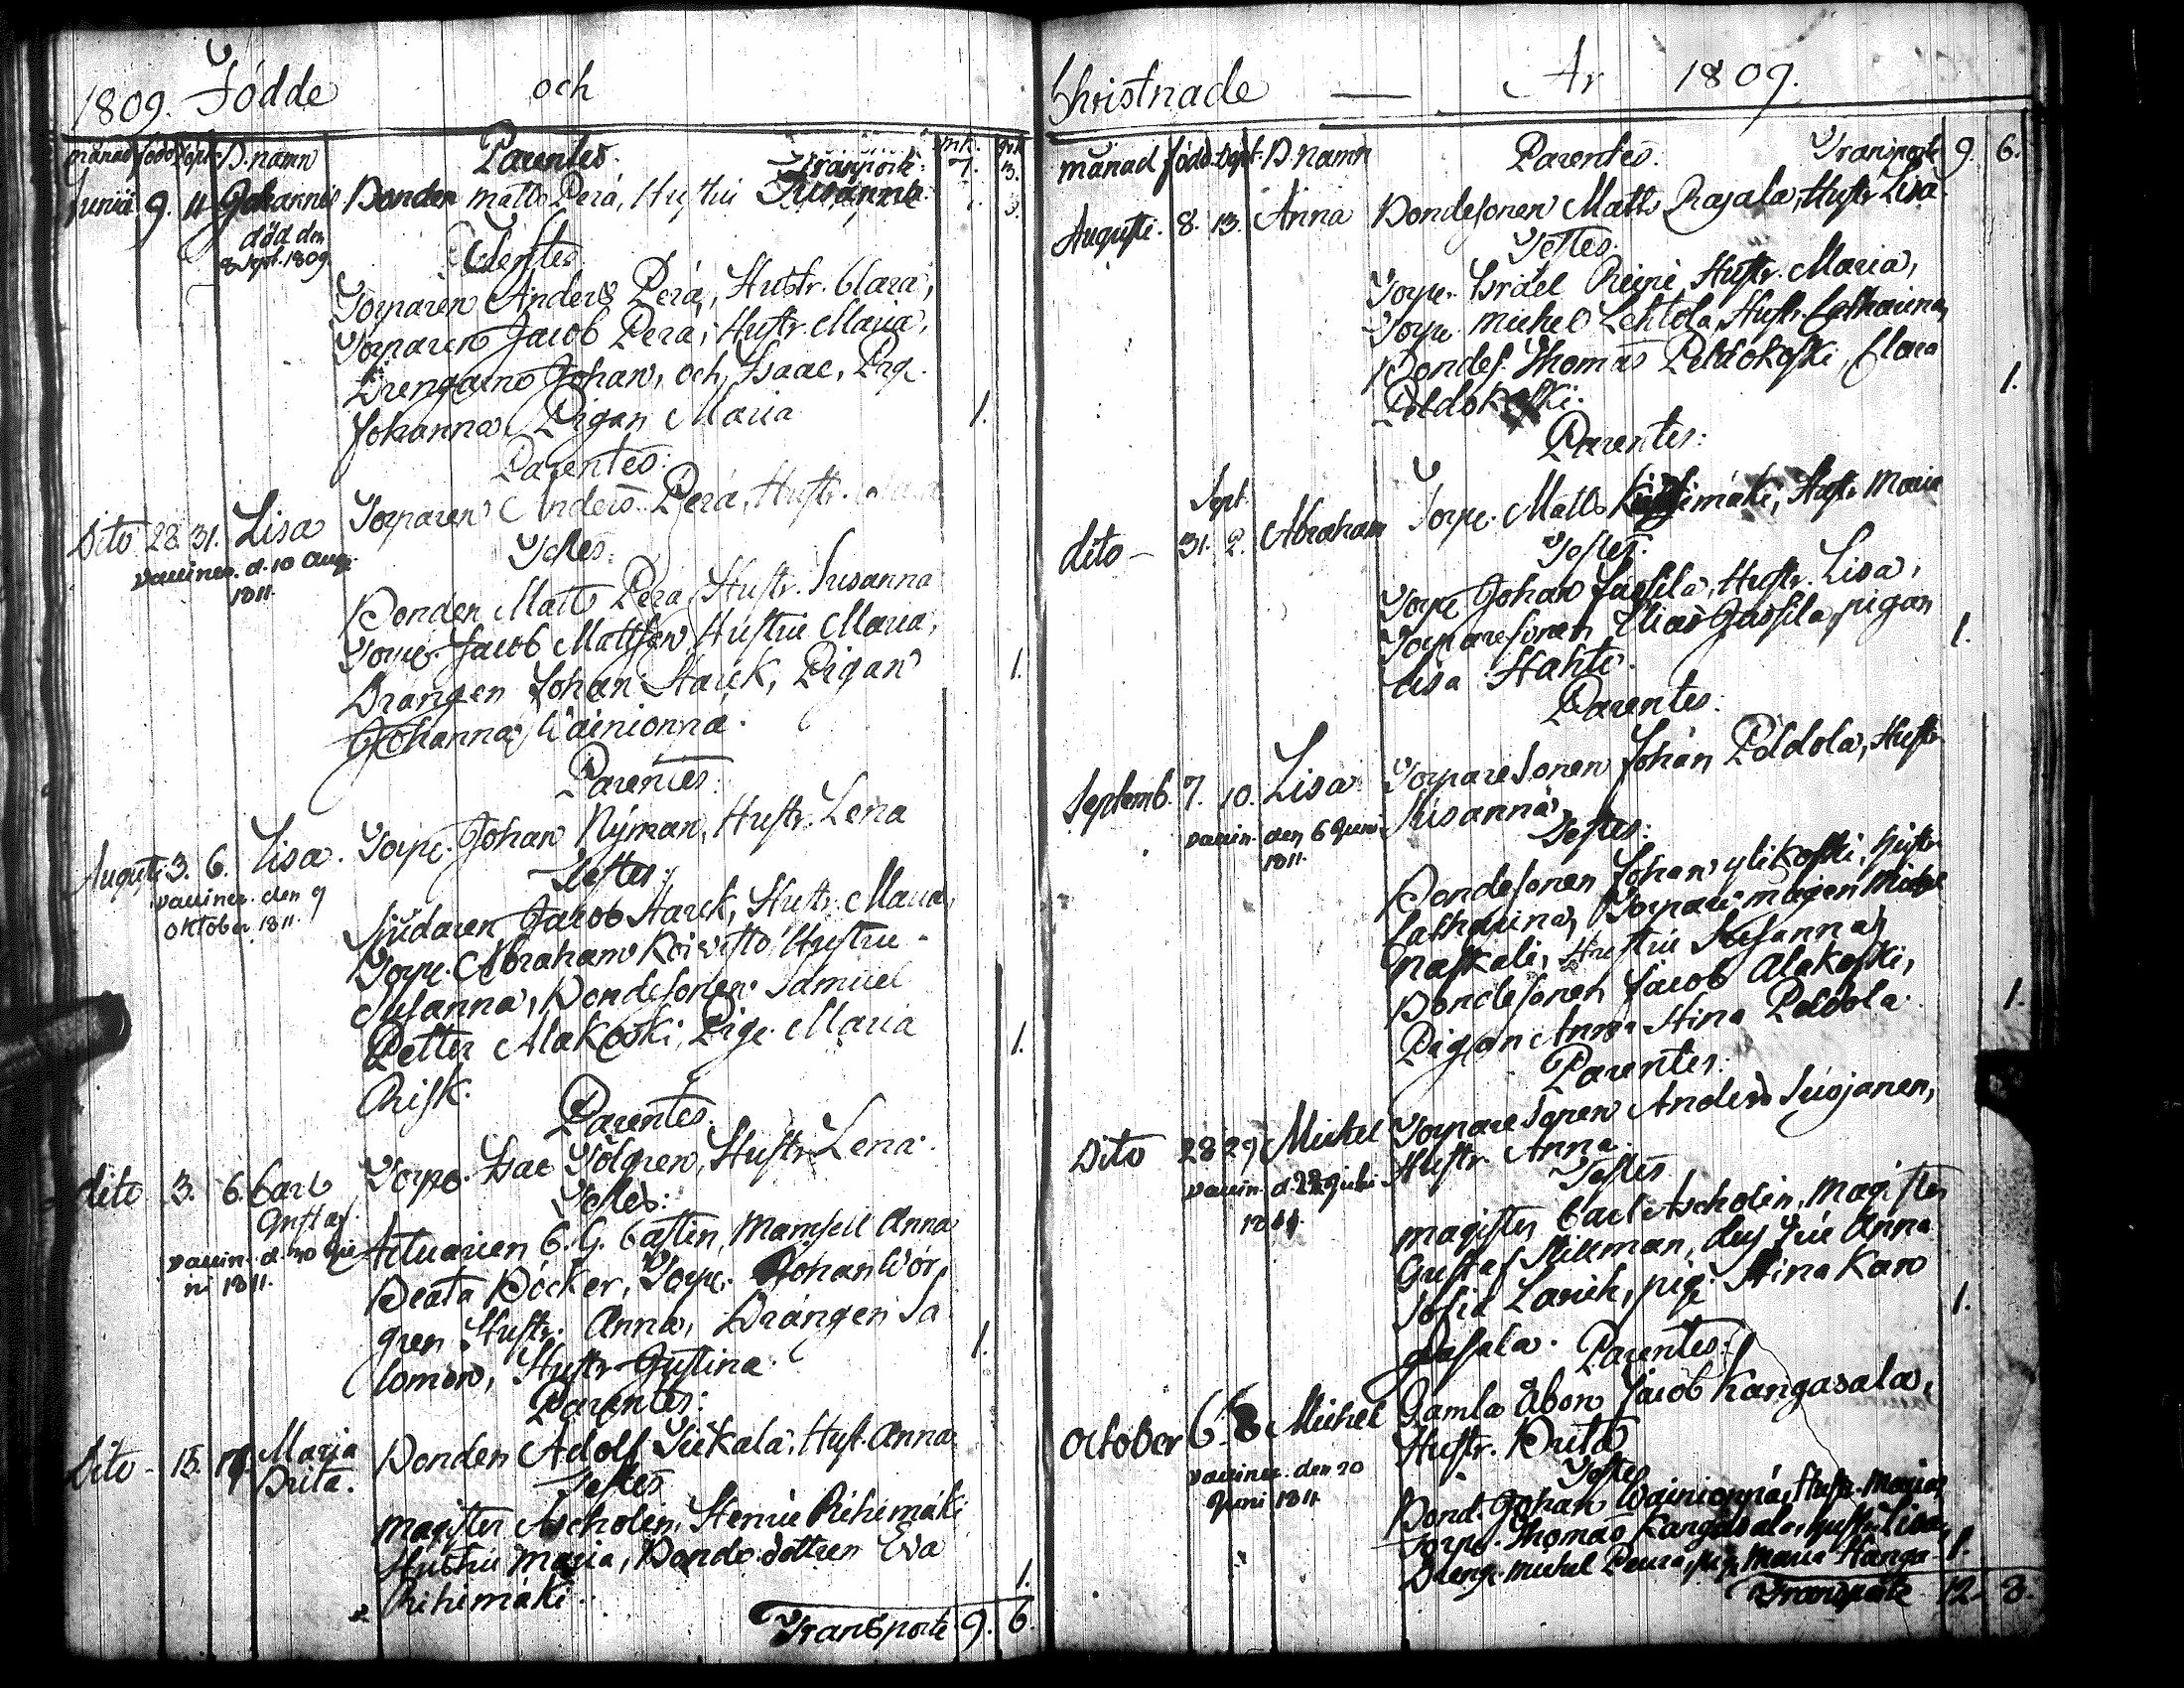 1809. Födde och
månad född döpt B. namn Parentes. Transporte mk. qvk
7. 3.
Junii 9. 11 Johannes Bonden Matts Perä, Hustru Susanna
död den
8 Sept. 1809.
Testes
Torparen Anders Perä, Hustr. Clara,
Torparen Jacob Perä, Hustr. Maria,
Drengarne Johan, och Isaac, Pig.
Johanna, Pigan Maria 1.
Parentes:
Dito 28. 31. Lisa Torparen Anders Perä, Hustr.
vacciner. d. 10 Aug.
1811.
Testes:
Bonden Matts Pera Hustr. Susanna
Torp. Jacob Mattson Hustru Maria,
Drängen Johan Starck, Pigan 1.
Johanna Wainionpä.
Parentes:
Augusti 3. 6. Lisa. Torp. Johan Nyman, Hustr. Lena
vacciner. den 9
October 1811.
Testes:
Jacob Starck, Hustr. Maria,
Torp. Abraham Koivisto Hustru
Susanna, Bondesonen Samuel
Petter Alakoski, Pig. Maria 1.
Risk.
Parentes.
dito 3. 6. Carl Torp. Isac Tölgren, Hustr. Lena.
Gustaf.
vaccin. d. 30 Ju
ni 1811.
Testes:
Actuarien C. G. Castén, Mamsell Anna
Beata Böcker, Torp. Johan Wör
gren Hustr. Anna, Drängen Sa 1.
lomon, Hustr. Justina.
Parentes:
Dito - 15. 17. Maria Bonden Adolf Tuckala, Hust. Anna
Brita.
Testes
Magister Ascholin, Henric Rihimäki
Hustru Maria, Bonde dottren Eva
Rihimäki. 1.
Transporte 9. 6.
Christnade — År 1809.
månad född. döpt. B. namn Parentes. Transporte 9. 6.
Augusti. 8. 13. Anna Bondesonen Matts Rajala, Hustr. Lisa
Testes.
Torp. Israel Reipi Hustr. Maria,
Torp. Michel Lehtola, Hustr. Catharina,
Bondes. Thomas Peldokoski, Clara
Peldokoski. 1.
Parentes:
Sept.
dito - 31. 2. Abraham Torp. Matts Hustr. Maria
Testes:
Torp. Johan Jussila, Hustr. Lisa,
Torparesonen Elias Jussila, pigan
Lisa Hahto. 1.
Parentes:
Septemb. 7. 10. Lisa Torparesonen Johan Peldola, Hustr.
Susanna.
vaccin. den 6 Juni
1811.
Testes:
Bondesonen Johan Ylikoski, Hustr.
Catharina, Torpare mågen Michel
Paskali, Hustru Susanna,
Bondesonen Jacob Alakoski,
Pigan Anna Stina Peldola. 1.
Parentes:
Dito 28 29 Michel Torparesonen Anders Suojanen,
Hustr. Anna.
vaccin. d. 22 Juli
1811.
Testes
Magister Carl Ascholin, Magister
Gustaf Hillman, Fru Anna
Sofia Larsch, pig. Stina Karo
Passala. 1.
Parentes:
October 6. 8. Michel Gamla Åbon Jacob Kangasala,
Hustr. Brita
vacciner. den 20
Juni 1811
Testes
Bond. Johan Wainionpä, Hustr. Maria,
Torp. Thomas Kangasala, Hustr. Lisa,
Dreng. Michel Peura, pig. Maria Hanga 1.
Transporte 12. 8.